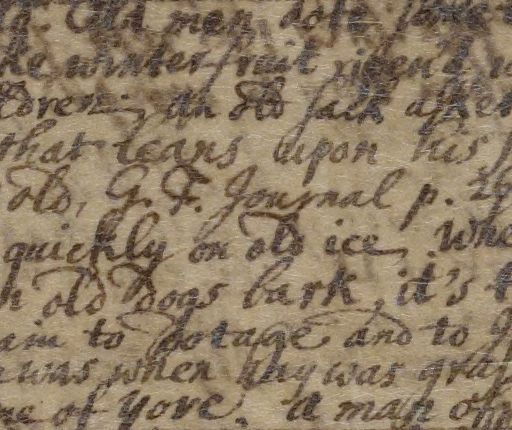 Old men dote some
winter fruit ripen'd
dren. An old sack asket
that leans upon his
old, G. F. Journal p. 29
quickly on old ice. Whe
old dogs bark, it's t
to potage and to
was when thy was gray
of yore. A man